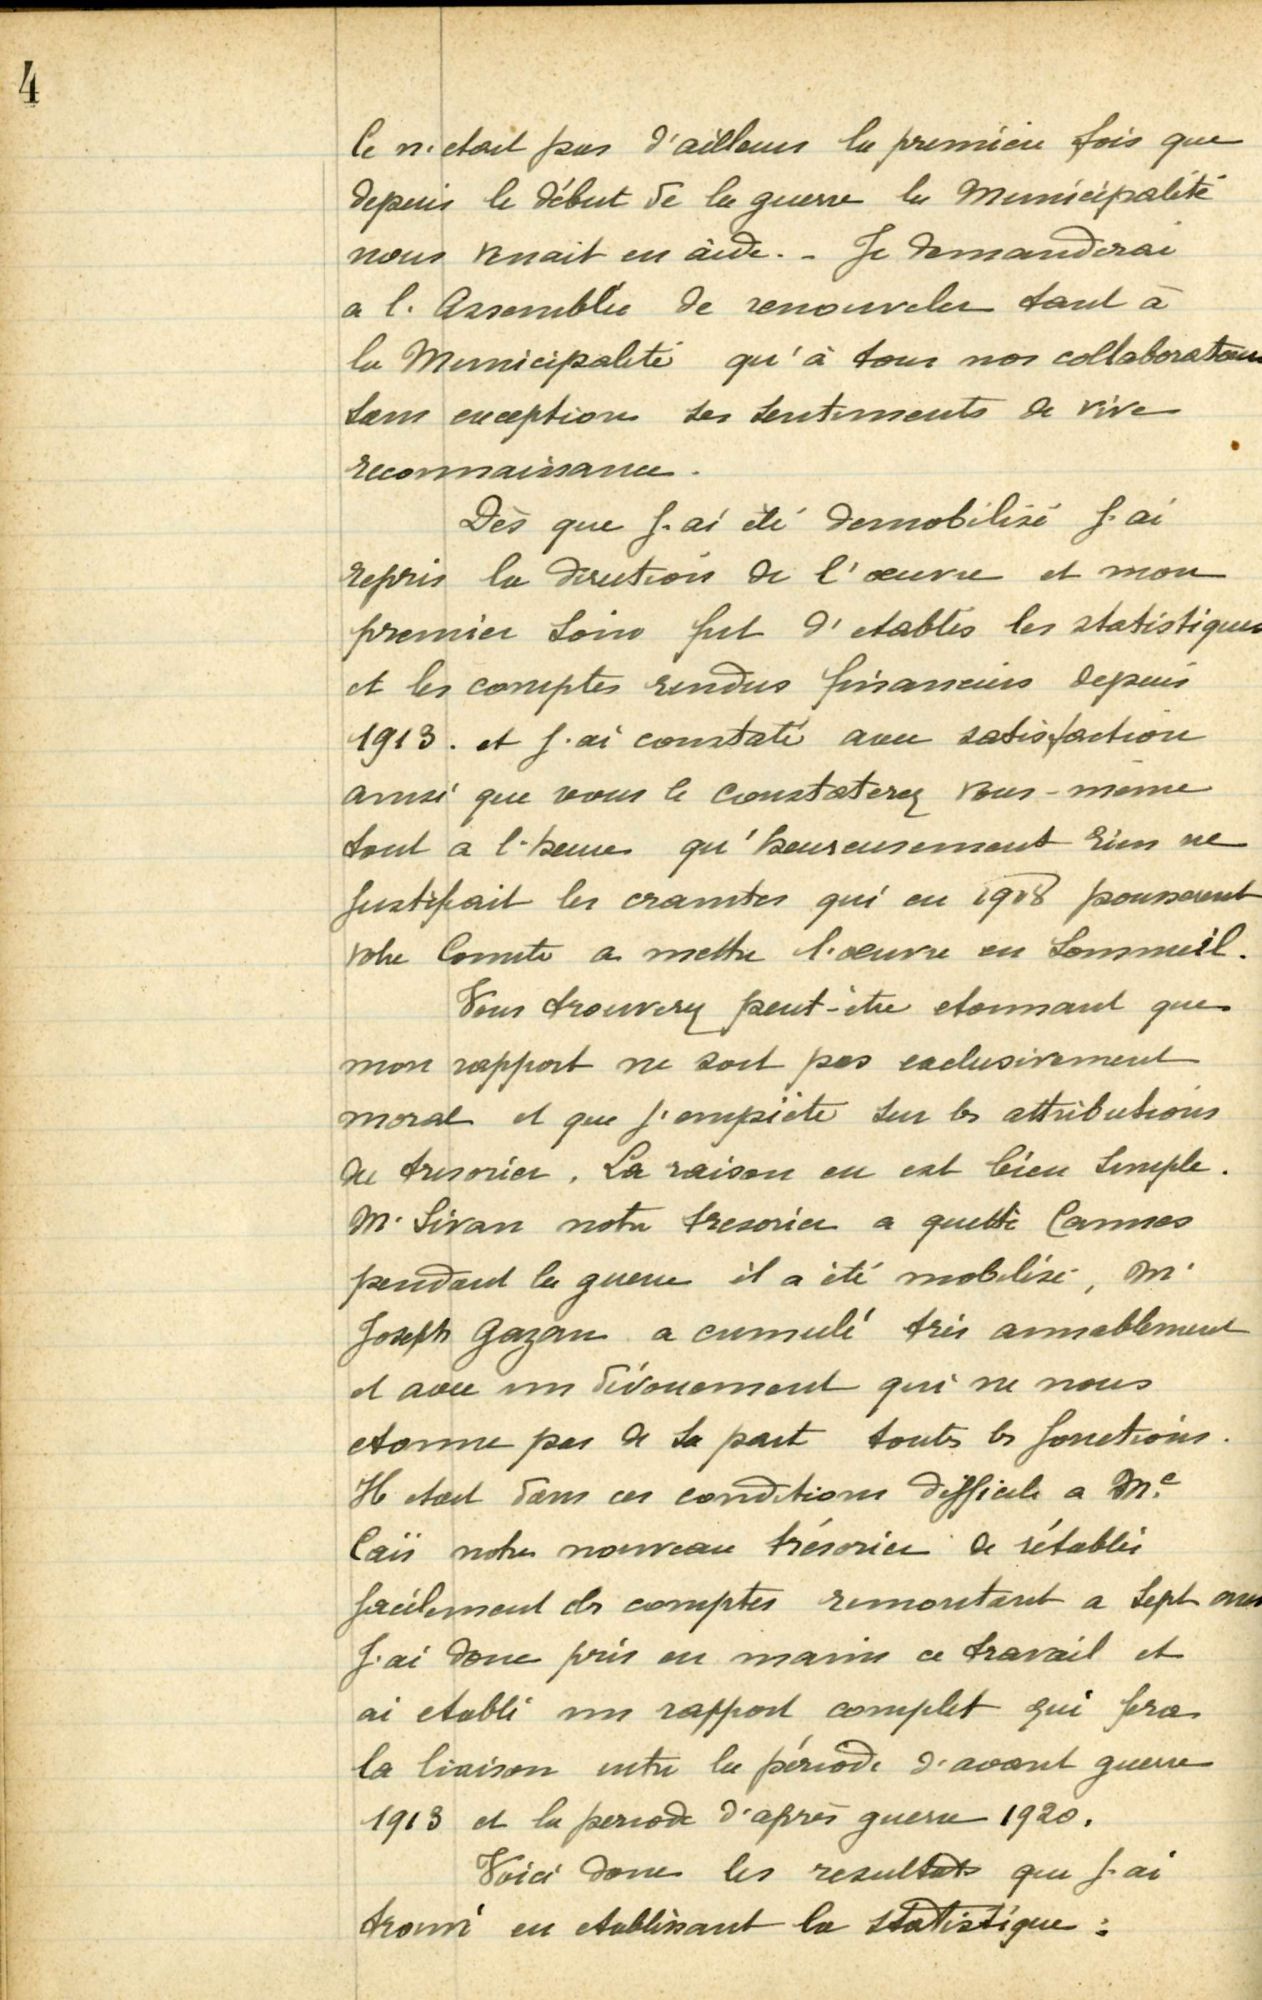 4
Ce n'etait pas d'ailleurs la première fois que
depuis le début de la guerre la Municipalité
nous venait en aide. - Je demanderai
a l'Assemblée de renouveler tant à
la Municipalité qu'à tous nos collaborateurs
sans exception ses sentiments de vive
reconnaissance.
Dès que j'ai été demobilisé j'ai
repris la direction de l'œuvre et mon
premier soin fut d'etablir les statistiques
et les comptes rendus financiers depuis
1913. et j'ai constaté avec satisfaction
ainsi que vous le constaterez vous-même
tout a l'heure qu'heureusement rien ne
justifiait les craintes qui en 1918 pousserent
votre Comite a mettre l'œuvre en sommeil.
Vous trouverez peut-être etonnant que
mon rapport ne soit pas exclusivement
moral et que j'empiète sur les attributions
du tresorier. La raison en est bien simple.
Mr Sivan notre tresorier a quitté Cannes
pendant la guerre il a été mobilisé, Mr
Joseph Gazan a cumulé très aimablement
et avec un dévouement qui ne nous
etonne pas de sa part toutes les fonctions.
Il etait dans ces conditions difficile a Me
Caïs notre nouveau trésorier de rétablir
facilement des comptes remontant a sept ans
J'ai donc pris en mains ce travail et
ai etabli un rapport complet qui fera
la liaison entre la période d'avant guerre
1913 et la periode d'après guerre 1920.
Voici donc les resultats que j'ai
trouvé en etablissant la statistique :